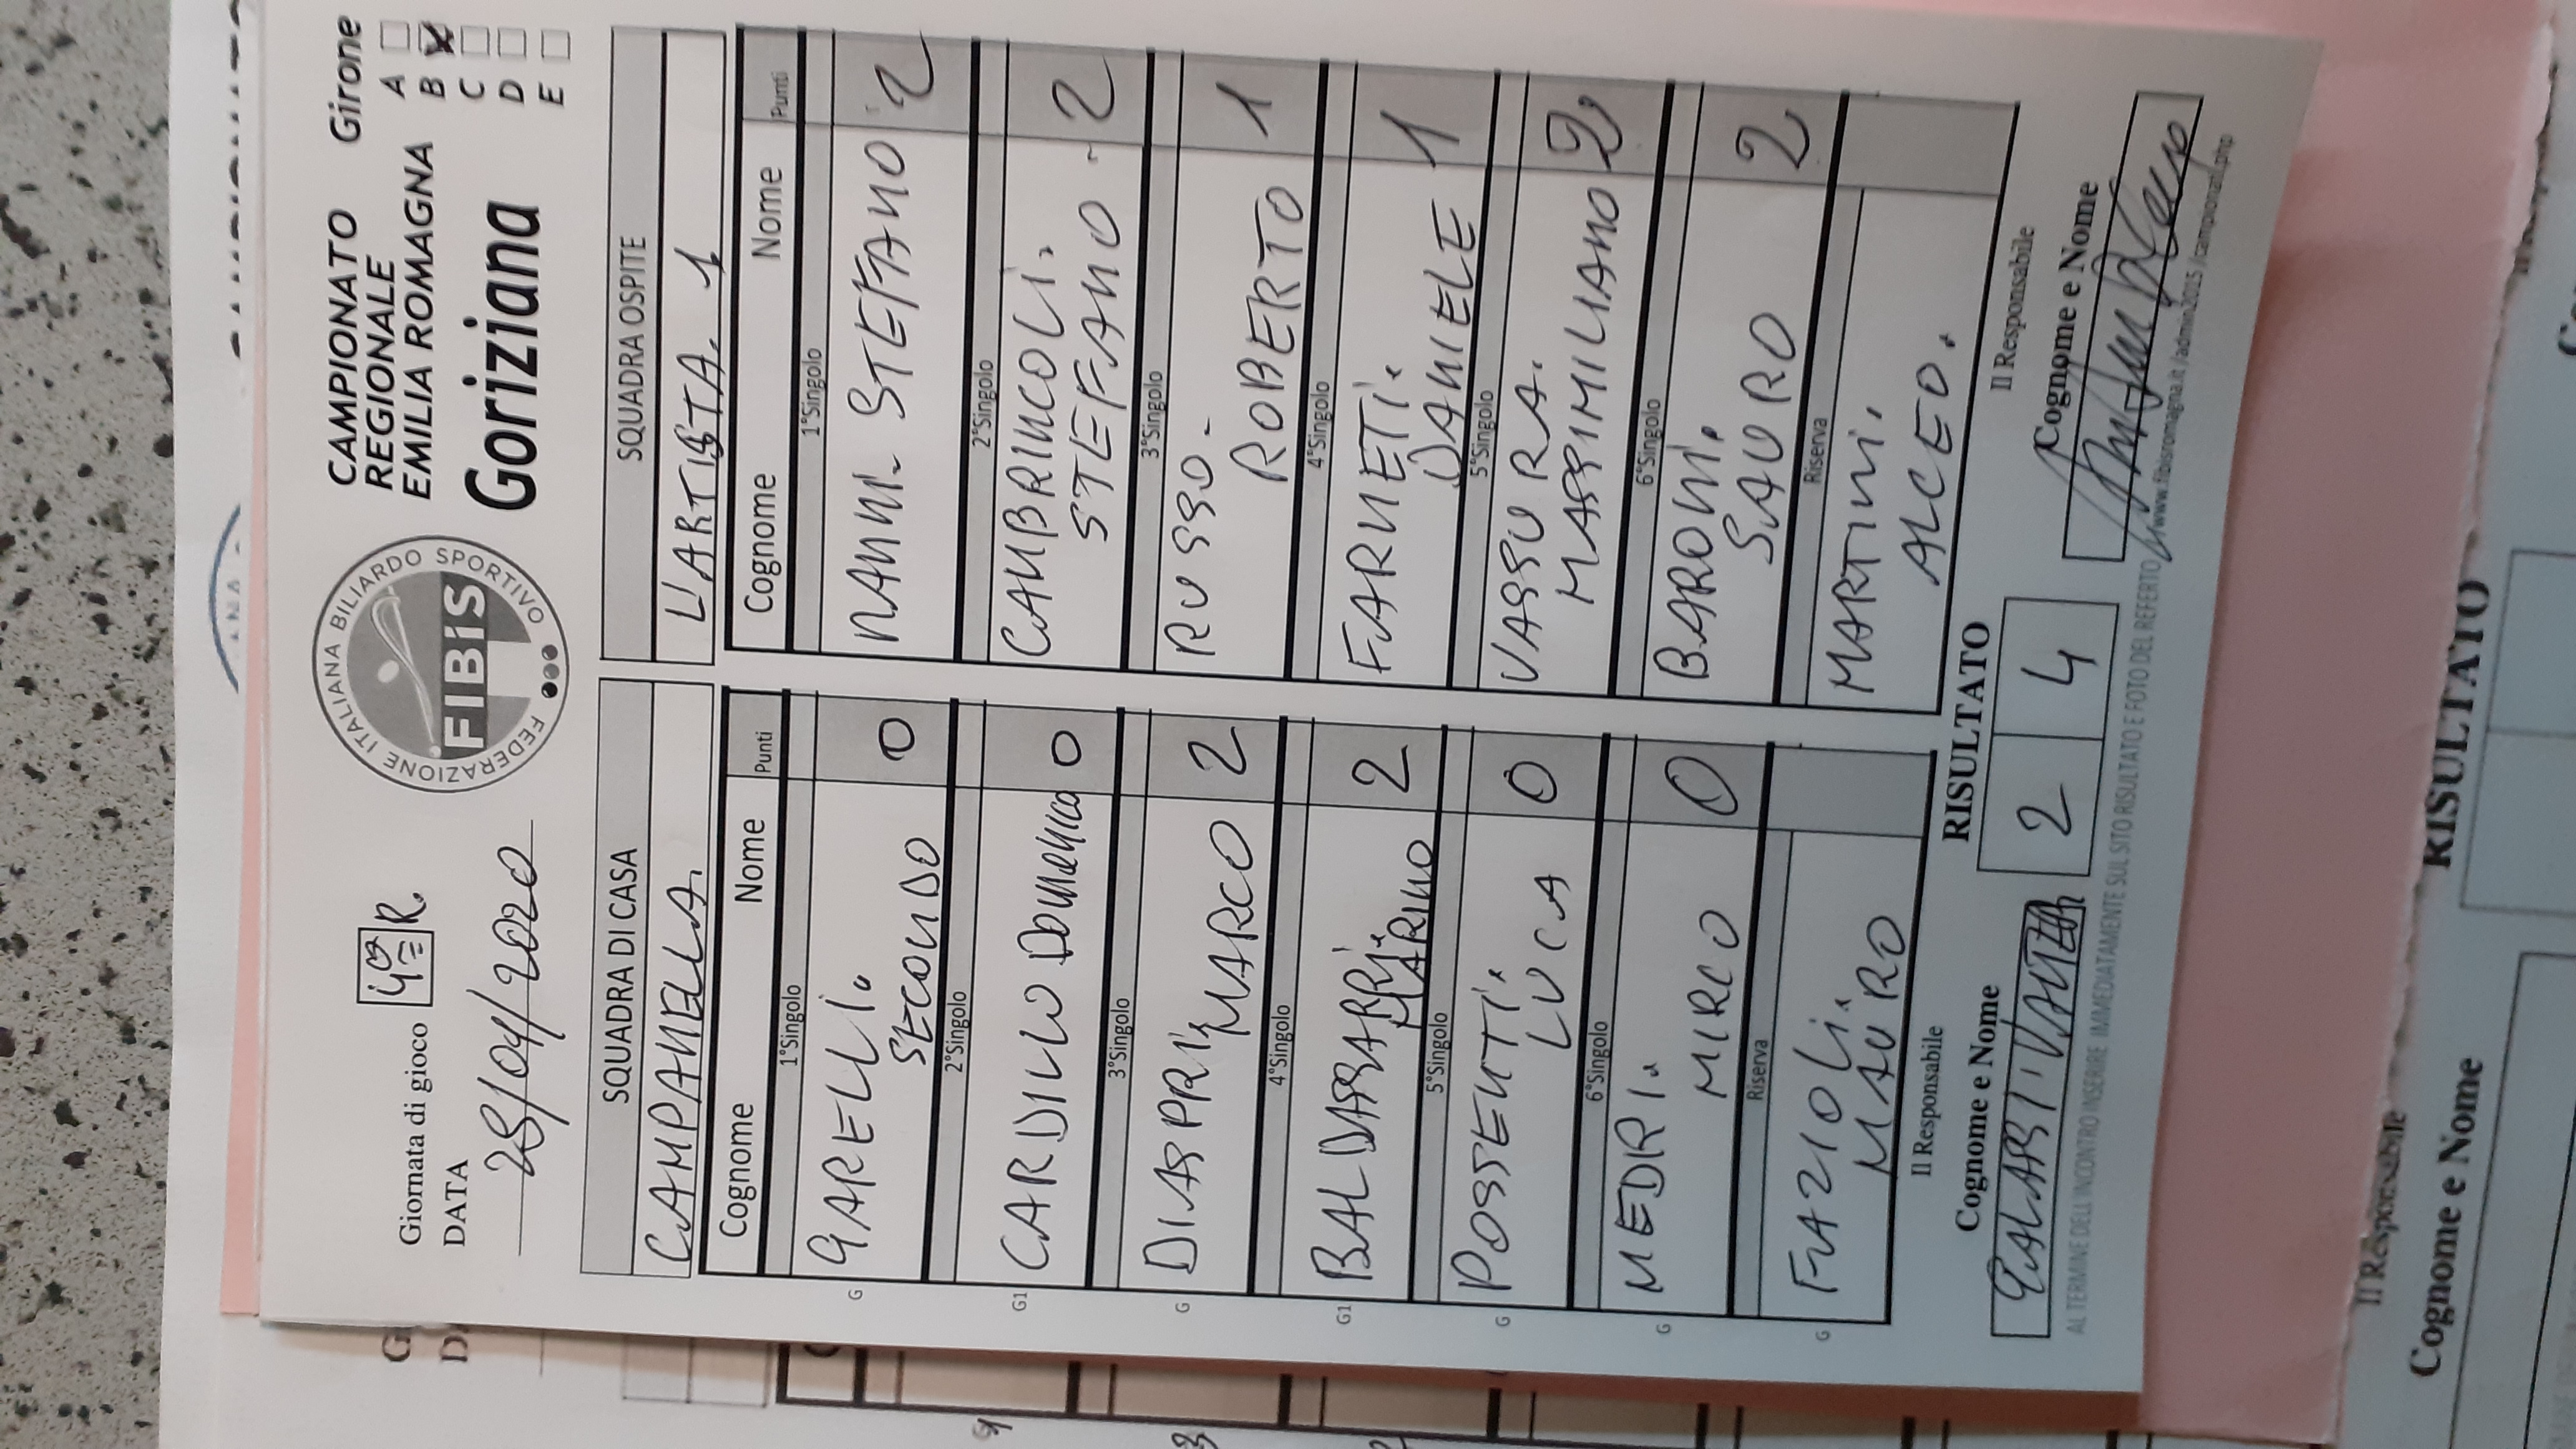 Giornata di gioco 4ª R.
DATA
28/04/2020
FEDERAZIONE ITALIANA BILIARDO SPORTIVO
FIBiS
CAMPIONATO
REGIONALE
EMILIA ROMAGNA
Goriziana
Girone
A
B X
C
D
E
SQUADRA DI CASA
CAMPANELLA.
Cognome Nome Punti
1°Singolo
G GARELLI. SECONDO 0
2°Singolo
G1 CARDILLO DOMENICO 0
3°Singolo
G DIASPRI. MARCO 2
4°Singolo
G1 BALDASSARRI. MARINO 2
5°Singolo
G POSSENTI. LUCA 0
6°Singolo
G MEDRI. MIRCO 0
Riserva
G FAZIOLI. MAURO
SQUADRA OSPITE
L'ARTISTA. 1
Cognome Nome Punti
1°Singolo
NANNI. STEFANO 2
2°Singolo
CAMBRINCOLI. STEFANO. 2
3°Singolo
RUSSO. ROBERTO 1
4°Singolo
FARNETI. DANIELE 1
5°Singolo
VASSURA. MASSIMILIANO 2
6°Singolo
BARONI. SAURO 2
Riserva
MARTINI. ALCEO.
Il Responsabile
Cognome e Nome
RISULTATO
2 4
Il Responsabile
Cognome e Nome
AL TERMINE DELL'INCONTRO INSERIRE IMMEDIATAMENTE SUL SITO RISULTATO E FOTO DEL REFERTO
Il Responsabile
Cognome e Nome
RISULTATO